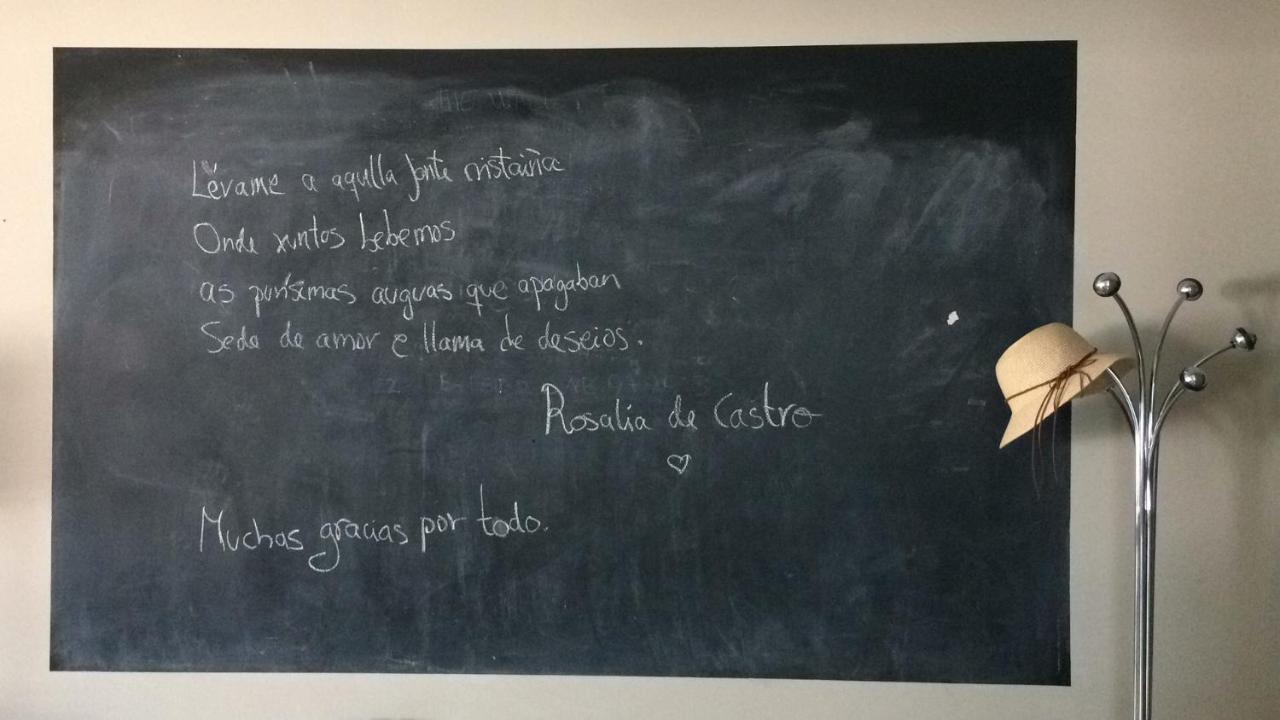 Lévame a aqulla fonte cristaiña
Onde xuntos bebemos
as purísimas auguas que apagaban
Sede de amor e llama de deseios.
Rosalia de Castro
Muchas gracias por todo.